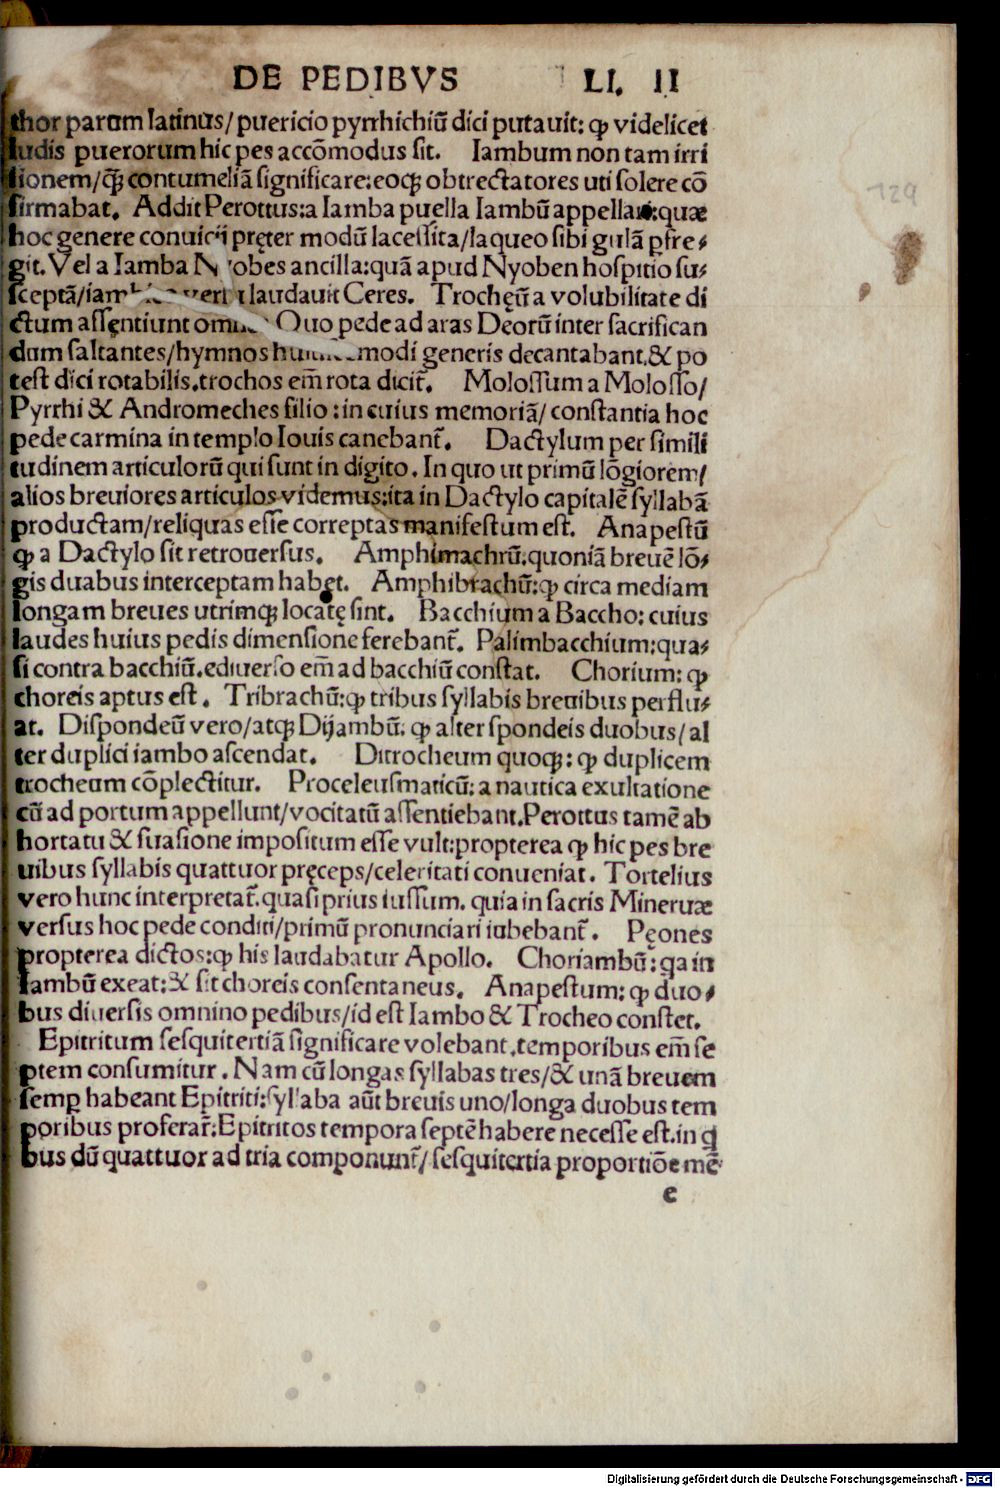 DE PEDIBVS LI. II
129
thor parum latinus/ puericio pyrrhichiū dici putauit: ꝙ videlicet
ludis puerorum hic pes accōmodus sit. Iambum non tam irri
sionem/q̄ꝫ contumeliā significare:eoqꝫ obtrectatores uti solere cō
firmabat. Addit Perottus:a Iamba puella Iambū :quæ
hoc genere conuicij pręter modū lacessita/laqueo sibi gulā ꝑfre⸗
git. Vel a Iamba ancilla:quā apud Nyoben hospitio su⸗
sceptā/ laudauit Ceres. Trochęū a volubilitate di
ctum assentiunt Quo pede ad aras Deorū inter sacrifican
dum saltantes/hymnos modi generis decantabant.& po
test dici rotabilis.trochos em̄ rota dicit̄. Molossum a Molosso/
Pyrrhi & Andromeches filio : in cuius memoriā/ constantia hoc
pede carmina in templo Iouis canebant̄. Dactylum per simili
tudinem articulorū qui sunt in digito. In quo ut primū lōgiorem/
alios breuiores articulos videmus:ita in Dactylo capitalē syllabā
productam/reliquas esse correptas manifestum est. Anapestū
ꝙ a Dactylo sit retrouersus. Amphimachrū.quoniā breuē lō⸗
gis duabus interceptam habet. Amphibrachū:ꝙ circa mediam
longam breues utrimqꝫ locatę sint. Bacchium a Baccho: cuius
laudes huius pedis dimensione ferebant̄. Palimbacchium:qua⸗
si contra bacchiū.ediuerso em̄ ad bacchiū constat. Chorium: ꝙ
choreis aptus est. Tribrachū:ꝙ tribus syllabis breuibus perflu⸗
at. Dispondeū vero/atqꝫ Dijambū: ꝙ alter spondeis duobus/ al
ter duplici iambo ascendat. Ditrocheum quoqꝫ: ꝙ duplicem
trocheum cōplectitur. Proceleusmaticū: a nautica exultatione
cū ad portum appellunt/vocitatū assentiebant.Perottus tamē ab
hortatu & suasione impositum esse vult:propterea ꝙ hic pes bre
uibus syllabis quattuor pręceps/celeritati conueniat. Tortelius
vero hunc interpretat̄.quasi prius iussum. quia in sacris Mineruæ
versus hoc pede conditi/primū pronunciari iubebant̄. Pęones
propterea dictos:ꝙ his laudabatur Apollo. Choriambū: qa in
Iambū exeat:& sit choreis consentaneus. Anapestum: ꝙ duo⸗
bus diuersis omnino pedibus/id est Iambo & Trocheo constet.
Epitritum sesquitertiā significare volebant.temporibus em̄ se
ptem consumitur. Nam cū longas syllabas tres/& unā breuem
semꝑ habeant Epitriti:syllaba aūt breuis uno/longa duobus tem
poribus proferat̄:Epitritos tempora septē habere necesse est.in q
bus dū quattuor ad tria componunt̄/ sesquitertia proportiōe mē
e
Digitalisierung gefördert durch die Deutsche Forschungsgemeinschaft - DFG